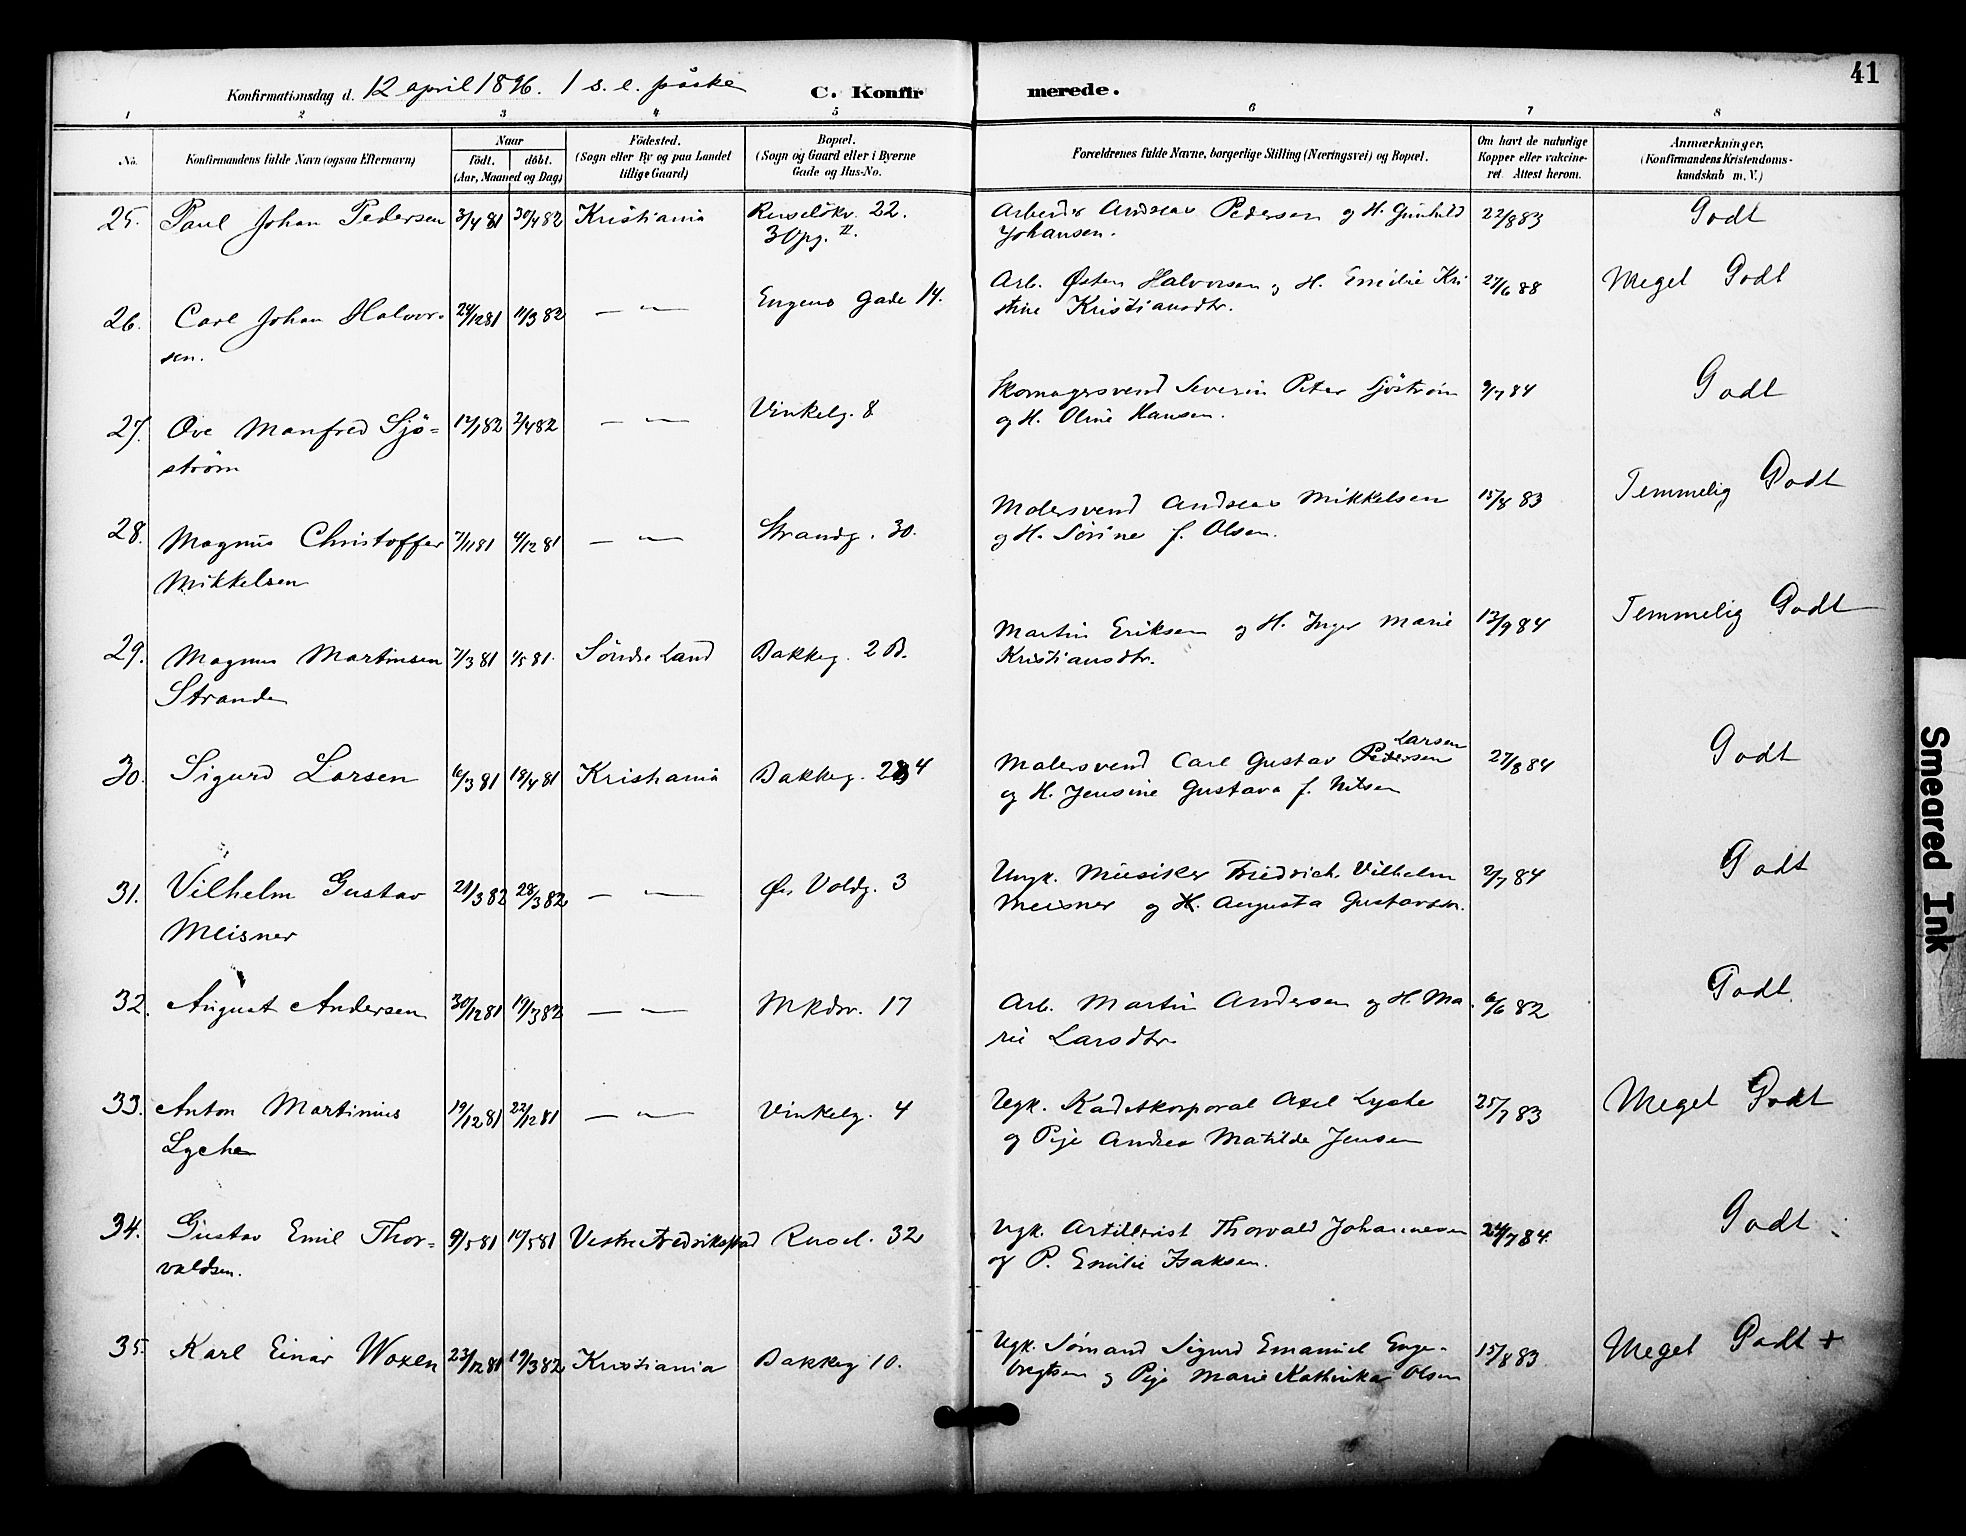 41
Konfirmationsdag d. 12 april 1896. 1 s. e. påske C. Konfirmerede.
1 2 3 4 5 6 7 8
No. Konfirmandens fulde Navn (ogsaa Efternavn) Naar født. døbt. (Aar, Maaned og Dag) Fødested. (Sogn eller By og paa Landet tillige Gaard) Bopæl. (Sogn og Gaard eller i Byerne Gade og Hus-No. Forældrenes fulde Navne, borgerlige Stilling (Næringsvei) og Bopæl. Om havt de naturlige Kopper eller vakcineret. Attest herom. Anmærkninger. (Konfirmandens Kristendomskundskab m. V.)
25. Paul Johan Pedersen 3/4 81 30/4 82 Kristiania Ruseløkv. 22. Arbeider Andreas Pedersen og H. Gunhild 22/8 83 Godt
3 Opg. II. Johansen.
26. Carl Johan Halvor- 24/12 81 11/3 82 — " — Eugens Gade 14. Arb. Østen Halvorsen og H. Emilie Kri 27/6 88 Meget Godt
sen. stine Kristiansdtr.
27. Ove Manfred Sjö- 12/1 82 2/4 82 — " — Vinkelg. 8 Skomagersvend Severin Peter Sjöström 9/7 84 Godt
ström og H. Oline Hansen.
28. Magnus Christoffer 7/11 81 4/12 81 — " — Strandg. 30. Malersvend Andreas Mikkelsen 15/8 83 Temmelig Godt
Mikkelsen og H. Sørine f. Olsen.
29. Magnus Martinsen 7/3 81 1/5 81. Søndre Land Bakkeg. 2 B. Martin Eriksen og H. Inger Marie 13/9 84 Temmelig Godt
Stranden Kristiansdtr.
30. Sigurd Larsen 6/3 81 18/4 81 Kristiania Bakkeg. 24 Malersvend Carl Gustav Pedersen Larsen 27/8 84 Godt
og H. Jensine Gustava f. Nilsen
31. Vilhelm Gustav 21/3 82 28/3 82 — " — Øv. Voldg. 3 Ungk. Musiker Friedrich Vilhelm 2/7 84 Godt
Meisner Meisner og H. Augusta Gustavsen.
32. August Andersen 30/12 81 19/3 82 — " — Mkdsv. 17 Arb. Martin Andersen og H. Ma- 6/6 82 Godt.
rie Larsdtr.
33. Anton Martinius 19/12 81 22/12 81 — " — Vinkelg. 4 Ugk. Kadetkorporal Axel Lyche 25/7 83 Meget Godt
Lyche og Pige Andrea Matilde Jensen
34. Gustav Emil Thor- 9/5 81 19/5 81 Vestre Fredrikstad Rusel. 32 Ugk. Artillerist Thorvald Johannesen 24/7 84. Godt
valdsen. og P. Emilie Isaksen.
35. Karl Einar Woxen 23/12 81 19/3 82 Kristiania Bakkeg 10. Ugk. Sømand Sigurd Emanuel Enge- 15/8 83 Meget Godt +
bregtsen og Pige Marie Kathinka Olsen
Smeared Ink